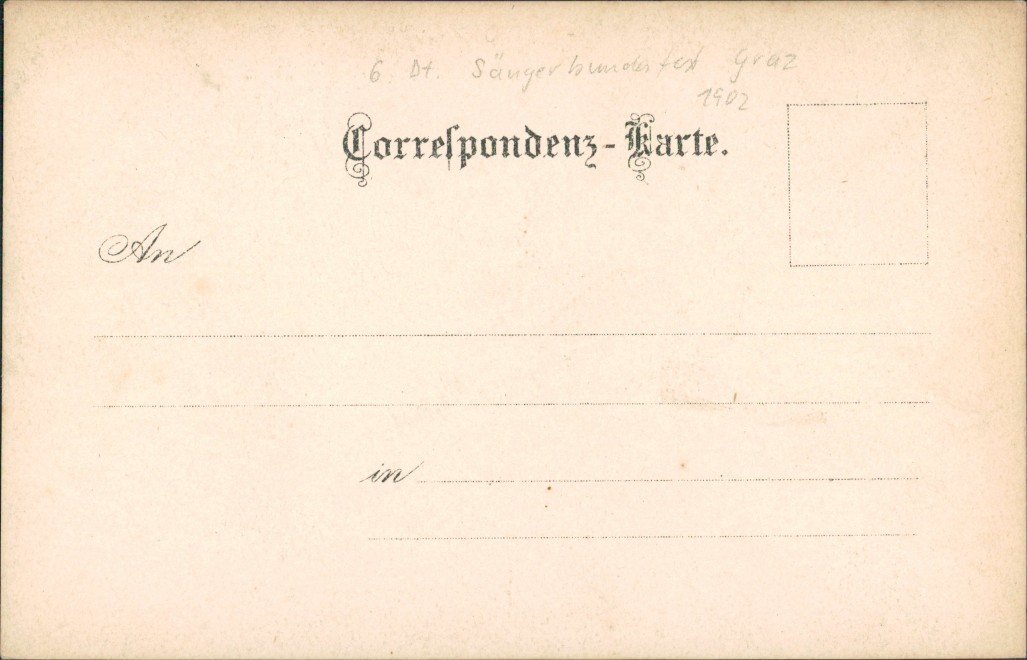 6. Dt. Sängerbundesfest Graz
1902
Correſpondenz-Karte.
An
in